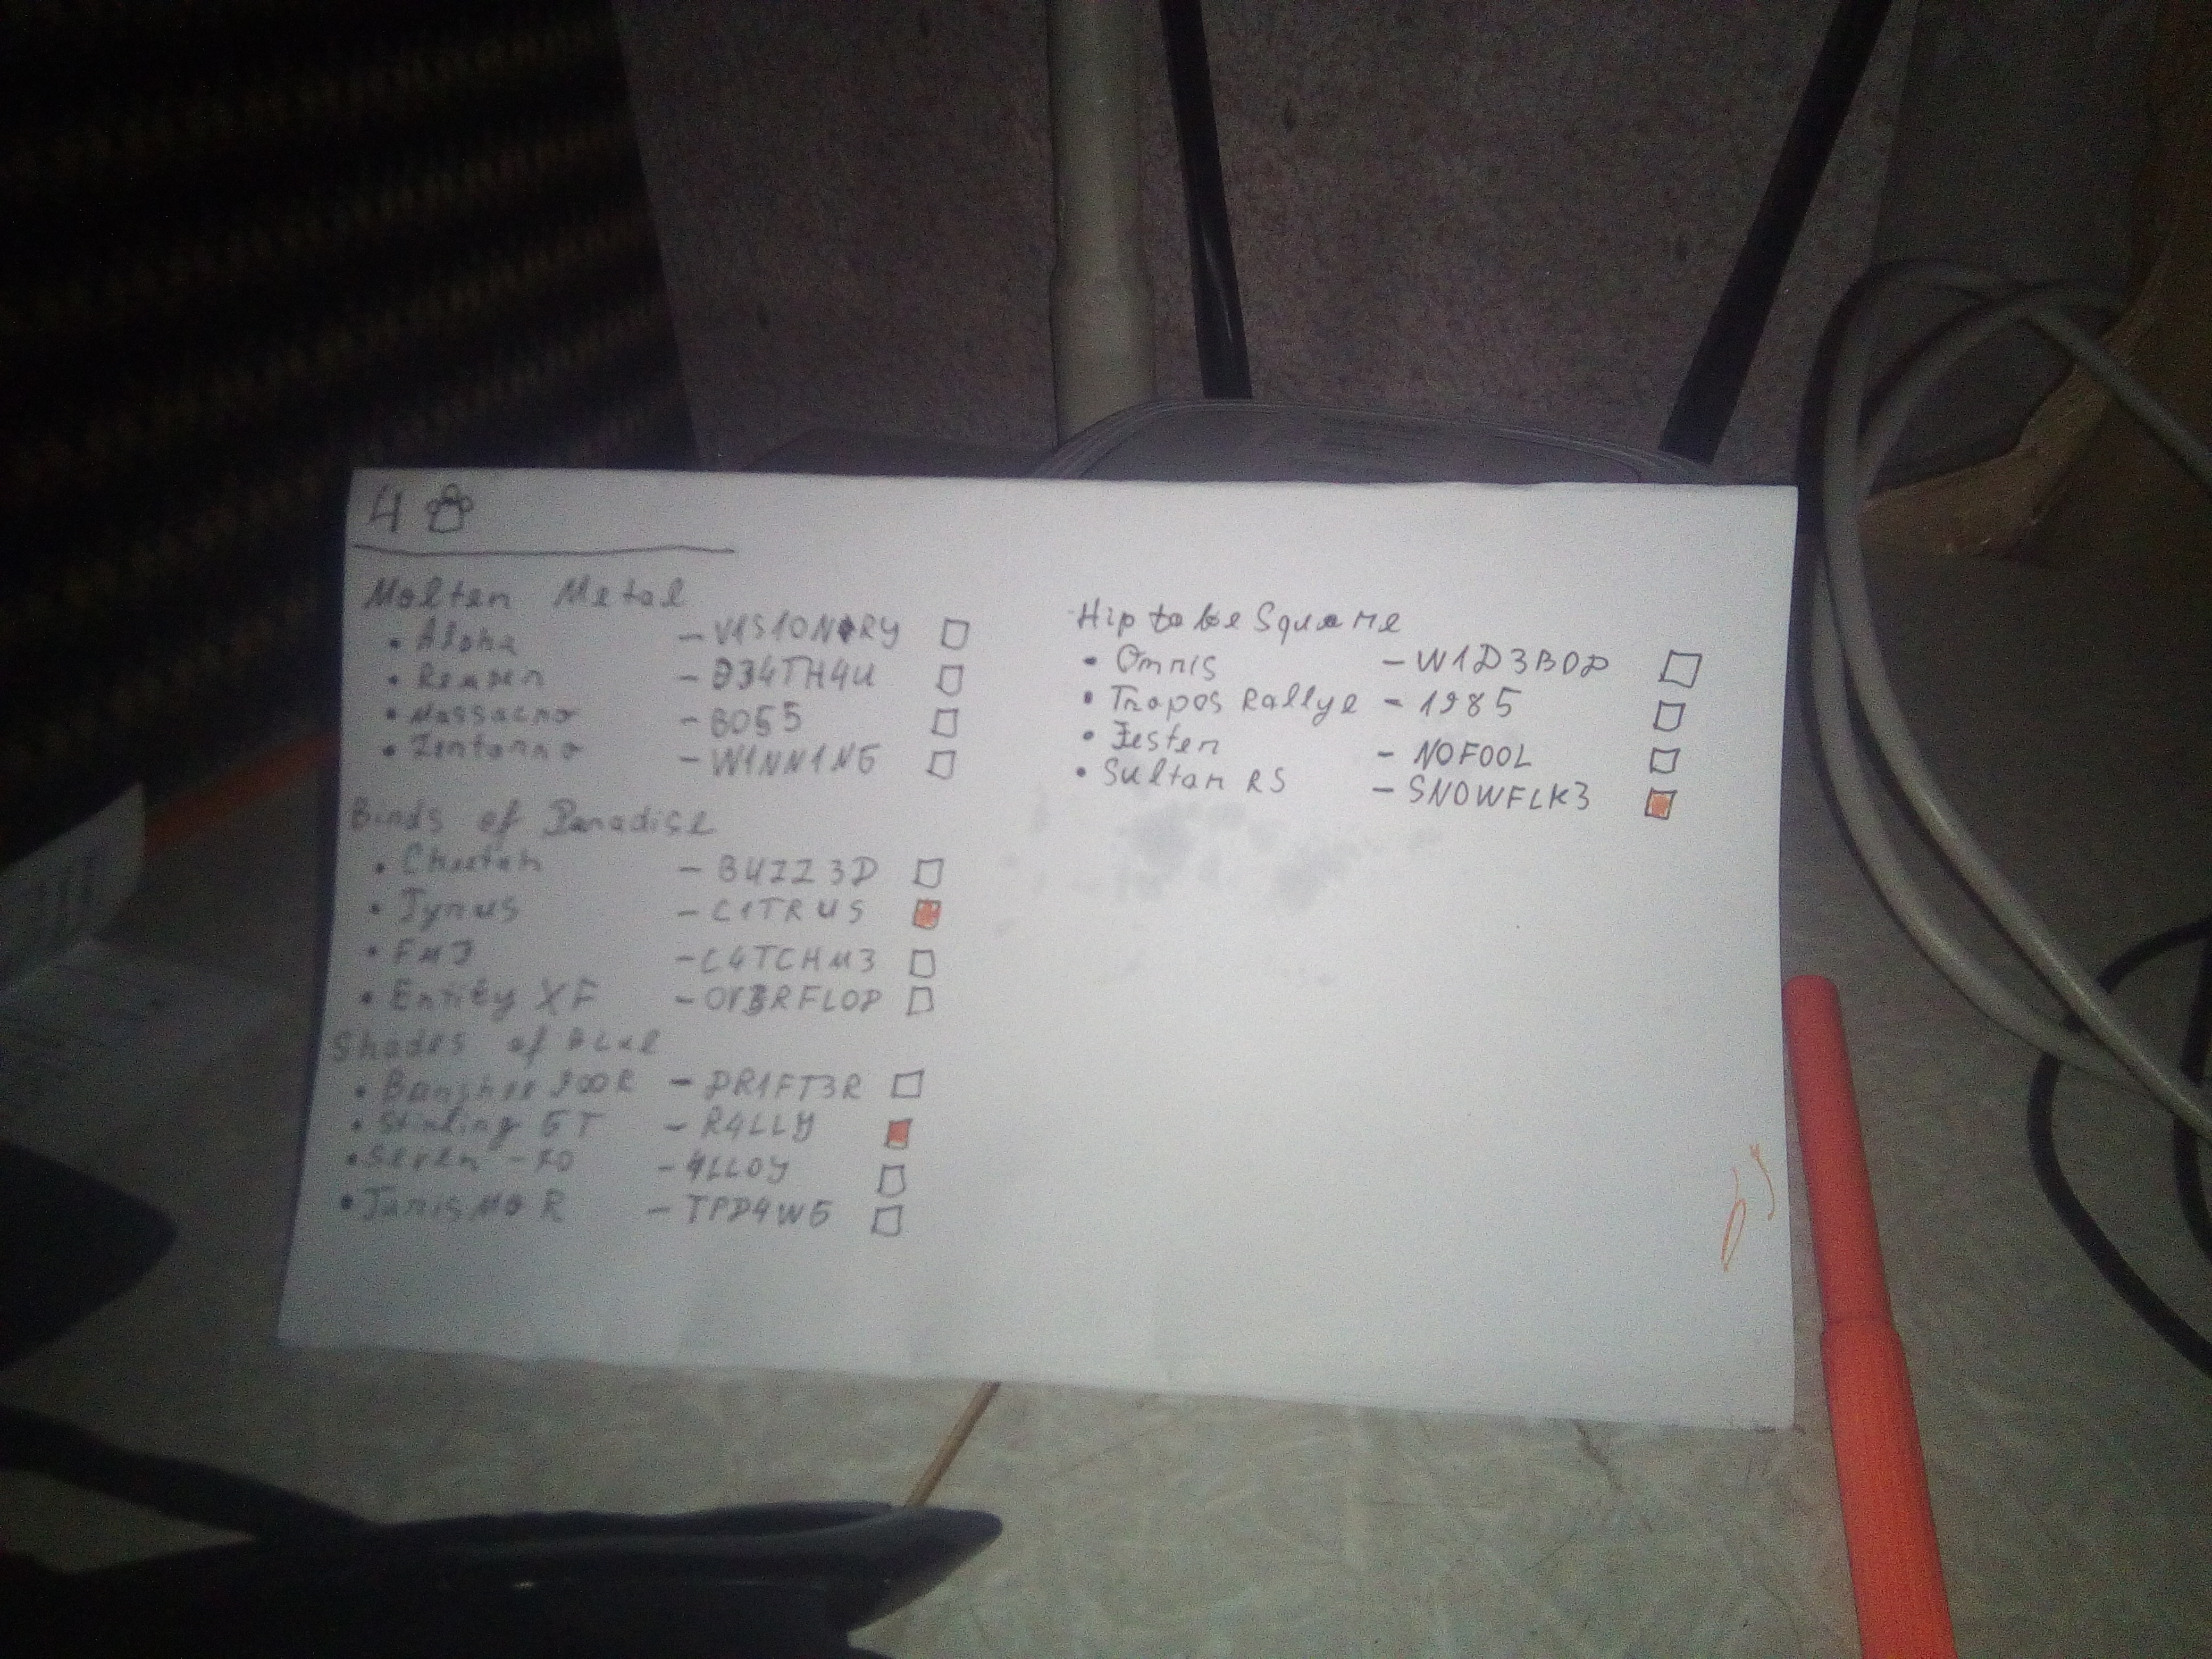 4
Molten Metal
• Alpha - V1S1ONARY
• Reaper - D34TH4U
• Massacro - BO55
• Zentorno - W1NN1NG
Birds of Paradise
• Cheetah - BUZZ3D
• Tyrus - C1TRUS
• FMJ - C4TCHM3
• Entity XF - OV3RFLOD
Shades of Blue
• Banshee 900R - DR1FT3R
• Stirling GT - R4LLY
• Seven-70 - 4LLOY
• JanisMo R - TPD4WG
Hip to be Square
• Omnis - W1D3BOD
• Tropos Rallye - 1985
• Jester - NOFOOL
• Sultan RS - SNOWFLK3